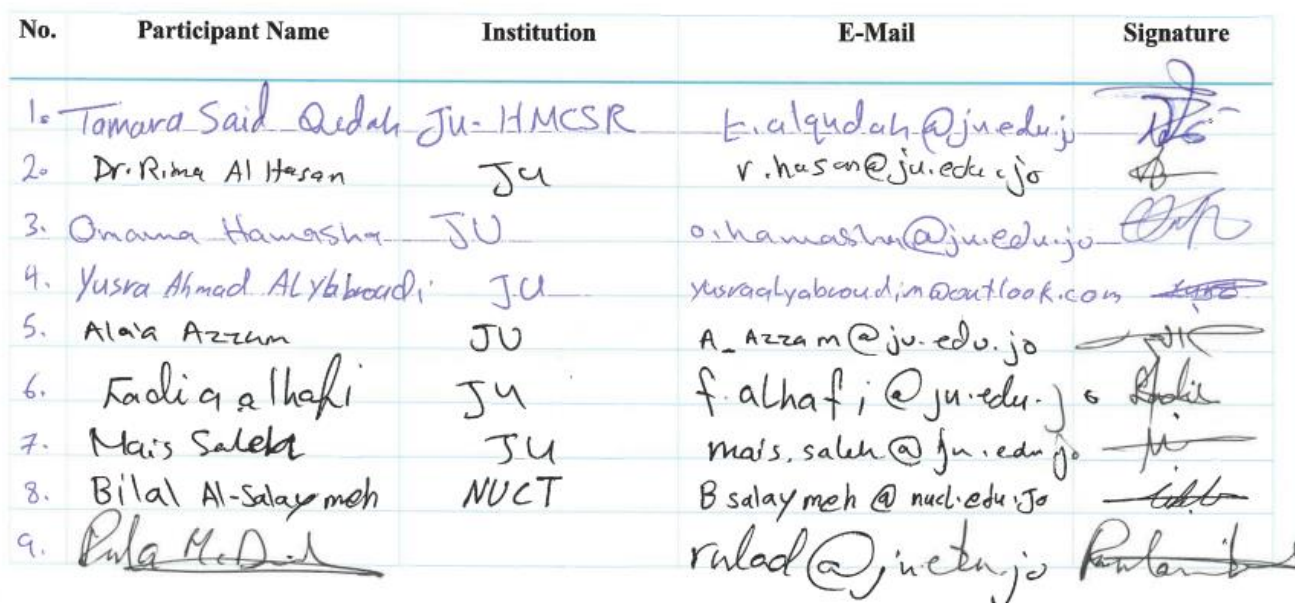 No. Participant Name Institution E-Mail Signature
1. Tamara Said Qudah JU-HMCSR t.alqudah@ju.edu.jo
2. Dr. Rima Al Hasan JU r.hasan@ju.edu.jo
3. Omama Hamasha JU o.hamasha@ju.edu.jo
4. Yusra Ahmad ALYabroudi JU yusraalyabroudim@outlook.com
5. Ala'a Azzam JU A_Azzam@ju.edu.jo
6. Fadia alhafi JU f.alhafi@ju.edu.jo
7. Mais Saleh JU mais.saleh@ju.edu.jo
8. Bilal Al-Salaymeh NUCT Bsalaymeh@nuct.edu.Jo
9. Rula rulad@ju.edu.jo